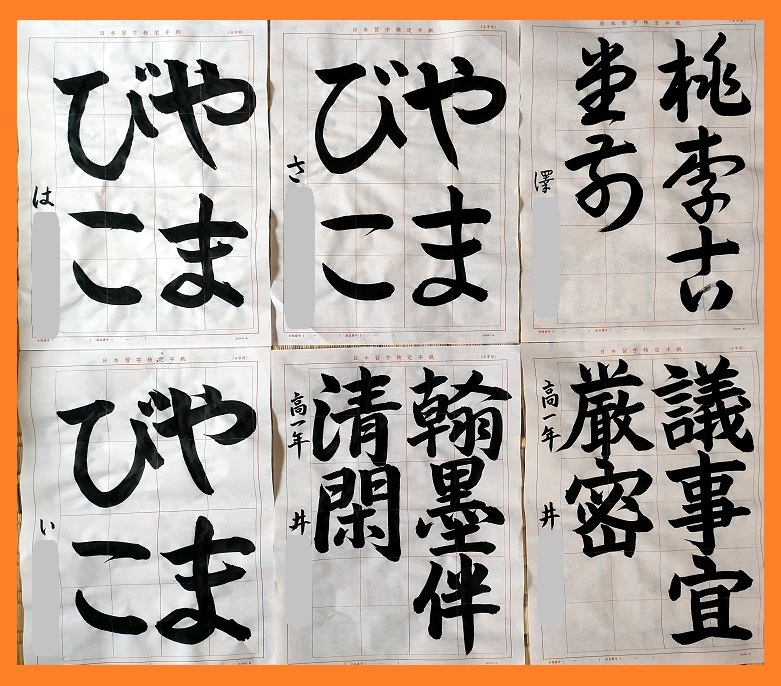 日本習字検定半紙
やま
びこ
は
日本習字検定半紙
やま
びこ
さ
日本習字検定半紙
桃李
堂前
澤
日本習字検定半紙
やま
びこ
い
日本習字検定半紙
翰墨伴
清閑
高一年 井
日本習字検定半紙
議事宜
厳密
高一年 井